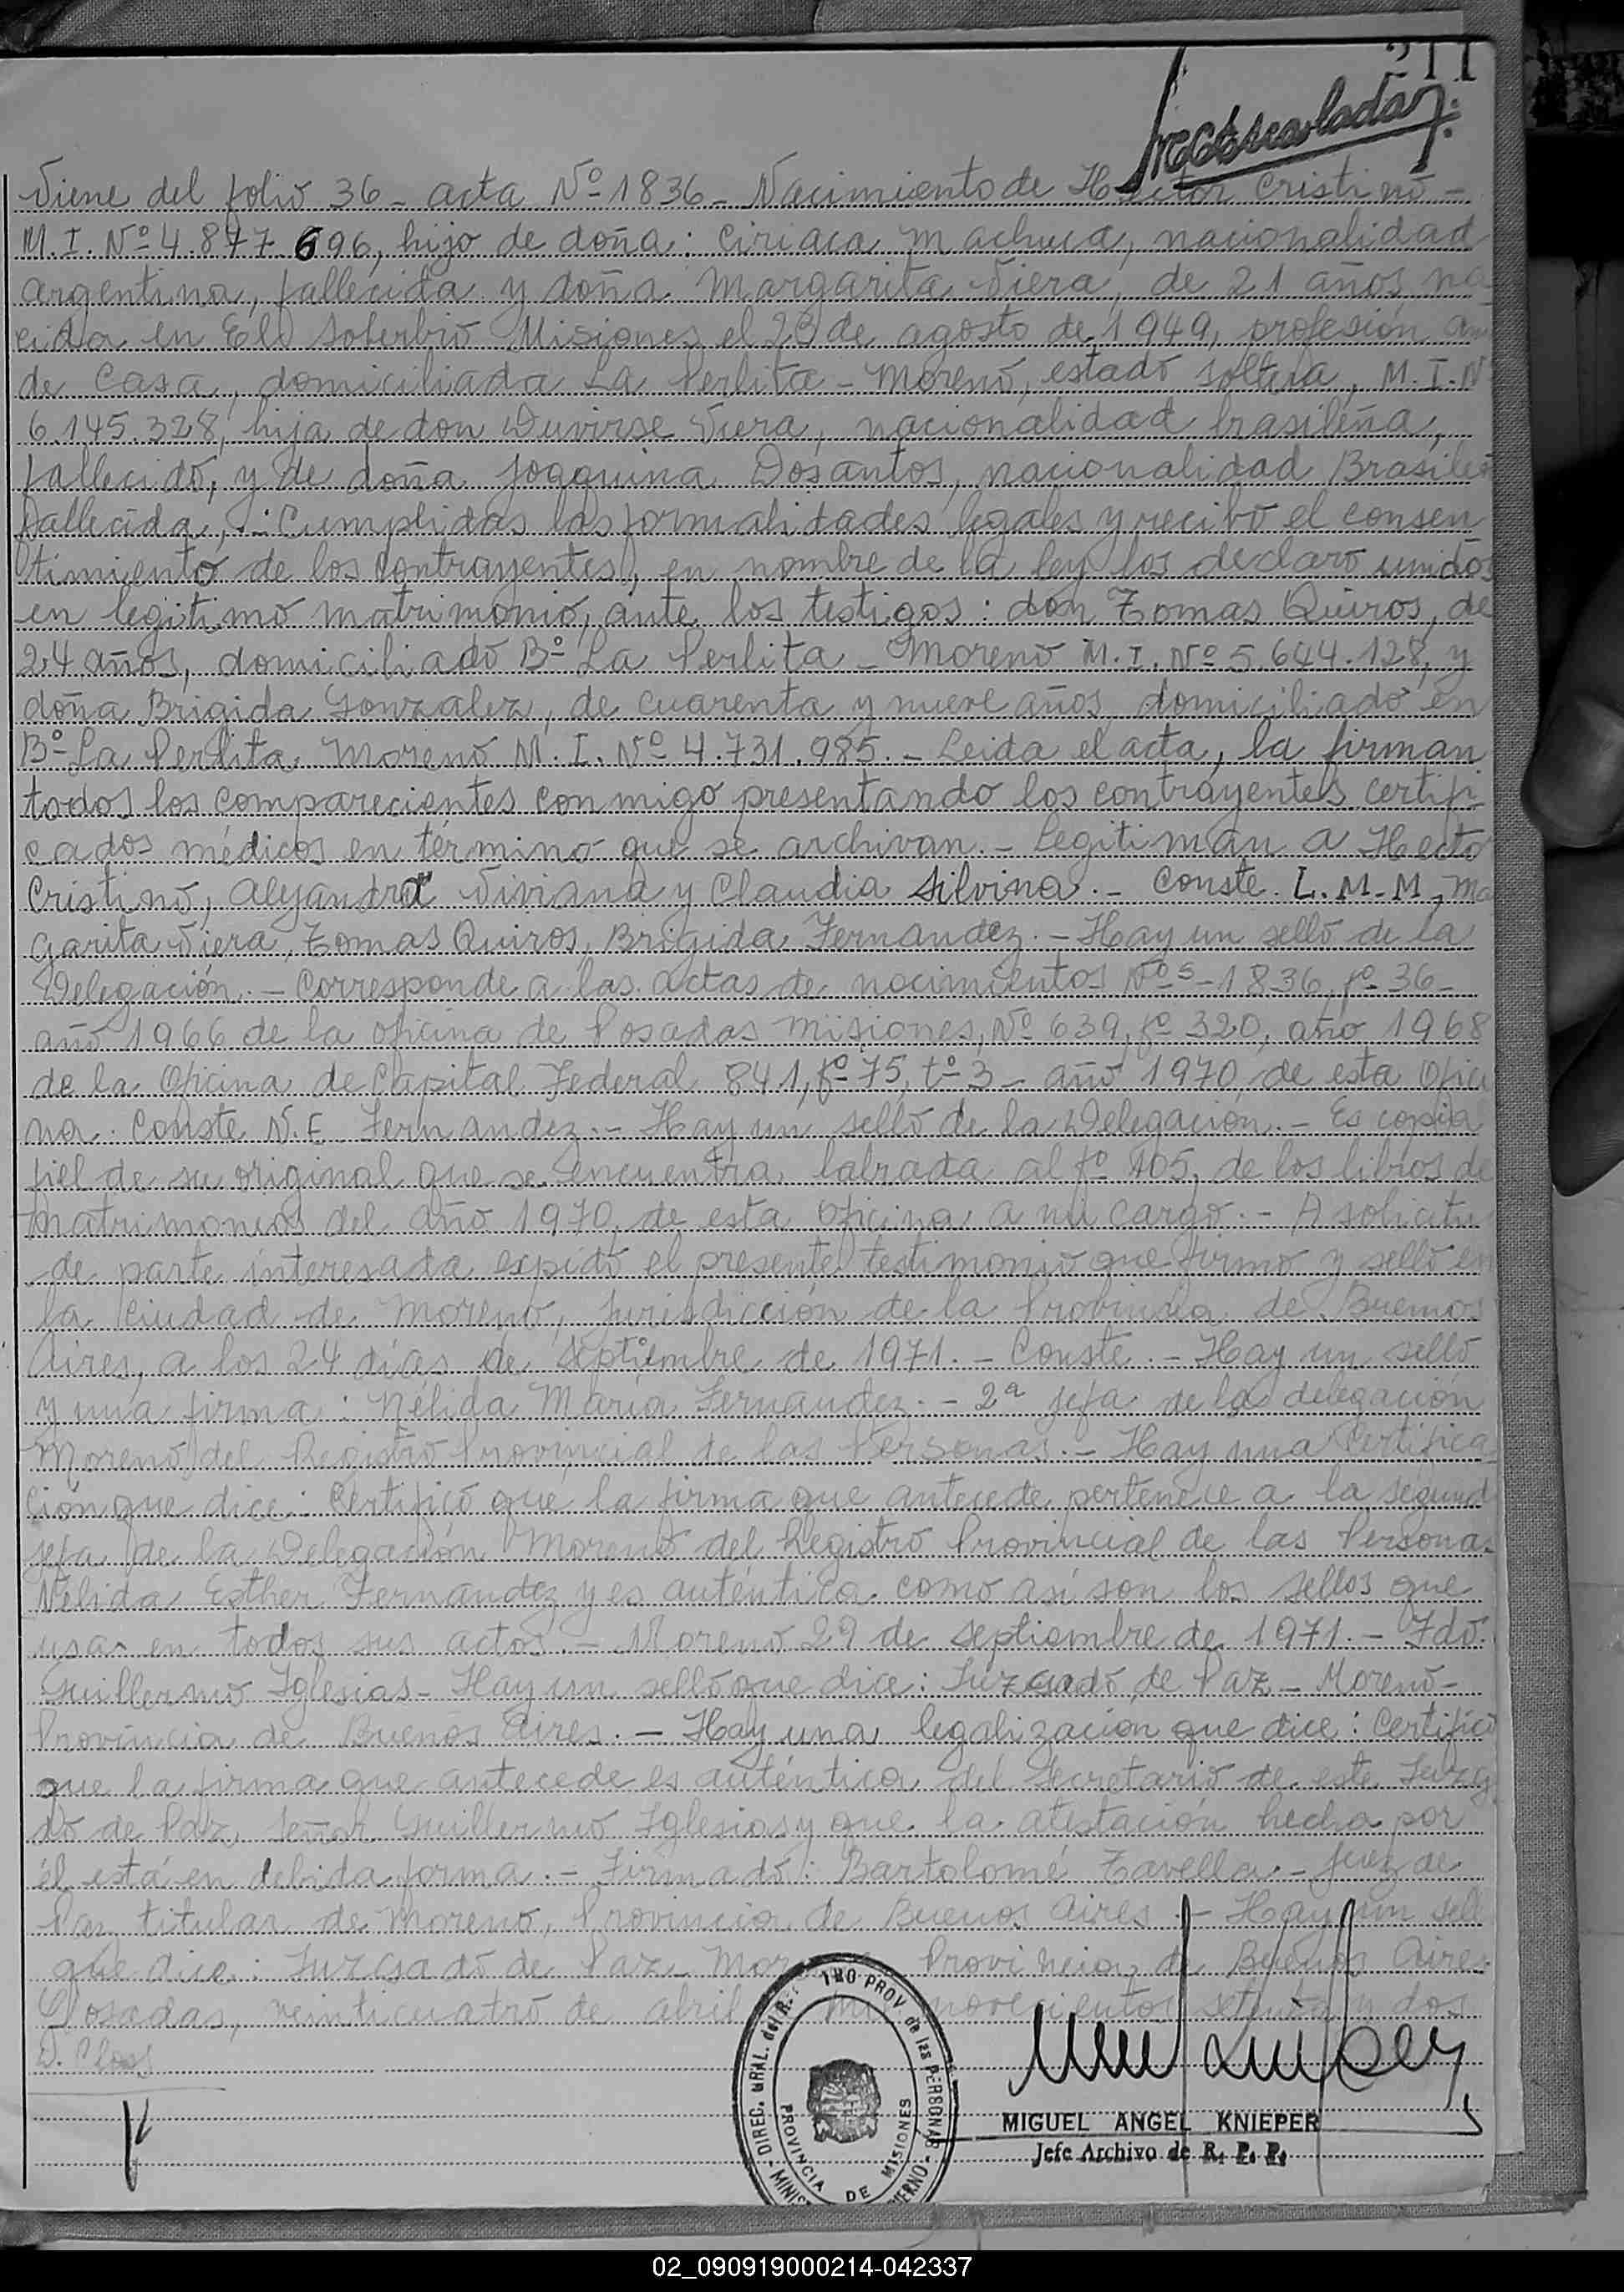 211
Viene del folio 36 - acta Nº 1836 - Nacimiento de Hector Cristino -
M. I. Nº 4.877.696, hijo de doña: Ciriaca Machuca, nacionalidad
argentina, fallecida y doña Margarita Viera, de 21 años na
cida en El Soberbio Misiones el 23 de agosto de 1949, profesión am
de Casa, domiciliada La Perlita - Moreno, estado soltera, M. I. Nº
6.145.328, hija de don Duvirse Viera, nacionalidad brasileña,
fallecido, y de doña Joaquina Dosantos, nacionalidad Brasileñ
fallecida, .- Cumplidas las formalidades legales y recibo el consen
timiento de los contrayentes, en nombre de la ley los declaro unidos
en legitimo matrimonio, ante los testigos: don Tomas Quiros, de
24 años, domiciliado Bº La Perlita - Moreno M. I. Nº 5.644.128, y
doña Brigida Gonzalez, de cuarenta y nueve años domiciliado en
Bº La Perlita Moreno M. I. Nº 4.731.985. - Leida el acta, la firman
todos los comparecientes conmigo presentando los contrayentes certifi
cados médicos en término que se archivan. - Legitiman a Hecto
Cristino, Alejandra Viviana y Claudia Silvina. - Conste. L. M - M, Ma
garita Viera, Tomas Quiros, Brigida Fernandez. - Hay un sello de la
Delegación. - Corresponde a las actas de nacimientos Nºs - 1836, fº 36 -
año 1966 de la oficina de Posadas Misiones, Nº 639, fº 320, año 1968
de la Oficina de Capital Federal 841, fº 75, tº 3 - año 1970 de esta Ofici
na. Conste N. E. Fernandez. - Hay un sello de la Delegación. - Es copia
fiel de su original que se encuentra labrada al fº 105, de los libros de
matrimonios del año 1970, de esta oficina a mi cargo. - A solicitu
de parte interesada expido el presente testimonio que firmo y sello en
la ciudad de Moreno, jurisdicción de la Provincia de Buenos
Aires, a los 24 dias de septiembre de 1971. - Conste. - Hay un sello
y una firma: Nélida María Fernandez. - 2ª jefa de la delegación
Moreno del Registro Provincial de las Personas. - Hay una Certifica
ción que dice: Certifico que la firma que antecede pertenece a la segund
jefa de la Delegación Moreno del Registro Provincial de las Personas
Nélida Esther Fernandez y es auténtica como así son los sellos que
usa en todos sus actos. - Moreno 29 de septiembre de 1971. - Fdo.
Guillermo Iglesias - Hay un sello que dice: Juzgado de Paz - Moreno -
Provincia de Buenos Aires. - Hay una legalización que dice: Certifico
que la firma que antecede es auténtica del secretario de este Juzga
do de Paz, Señor Guillermo Iglesias y que la atestación hecha por
él está en debida forma. - Firmado: Bartolomé Tavella. - Juez de
Paz titular de Moreno, Provincia de Buenos Aires. - Hay un sell
que dice: Juzgado de Paz Provincia de Buenos Aires.
Posadas, veinticuatro de abril novecientos setenta y dos
MIGUEL ANGEL KNIEPER
Jefe Archivo de R. P. P.
DIREC. GRAL. del PROV. de las PERSONAS
PROVINCIA DE MISIONES
02_090919000214-042337